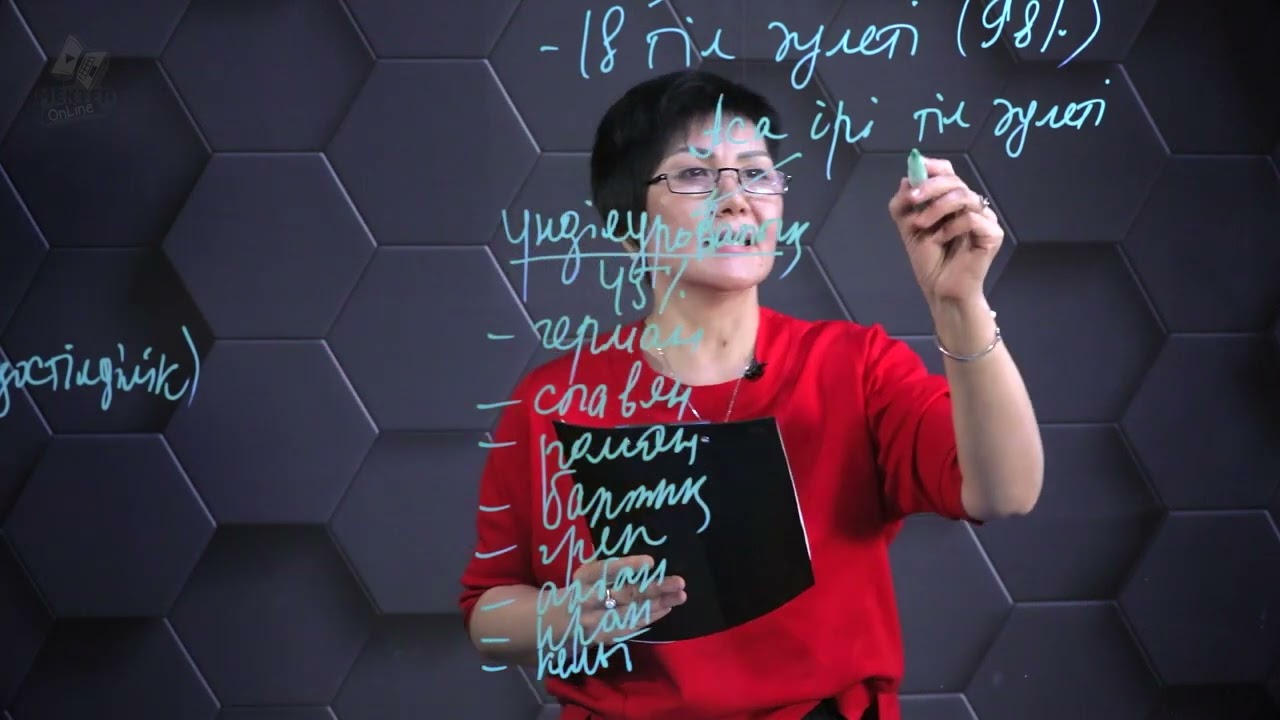 - 18 тіл әулеті (98%)
Аса ірі тіл әулеті
Үндіеуропалық
45%
- герман
- славян
- роман
- балтық
- грек
- албан
- иран
- кельт
OnLine